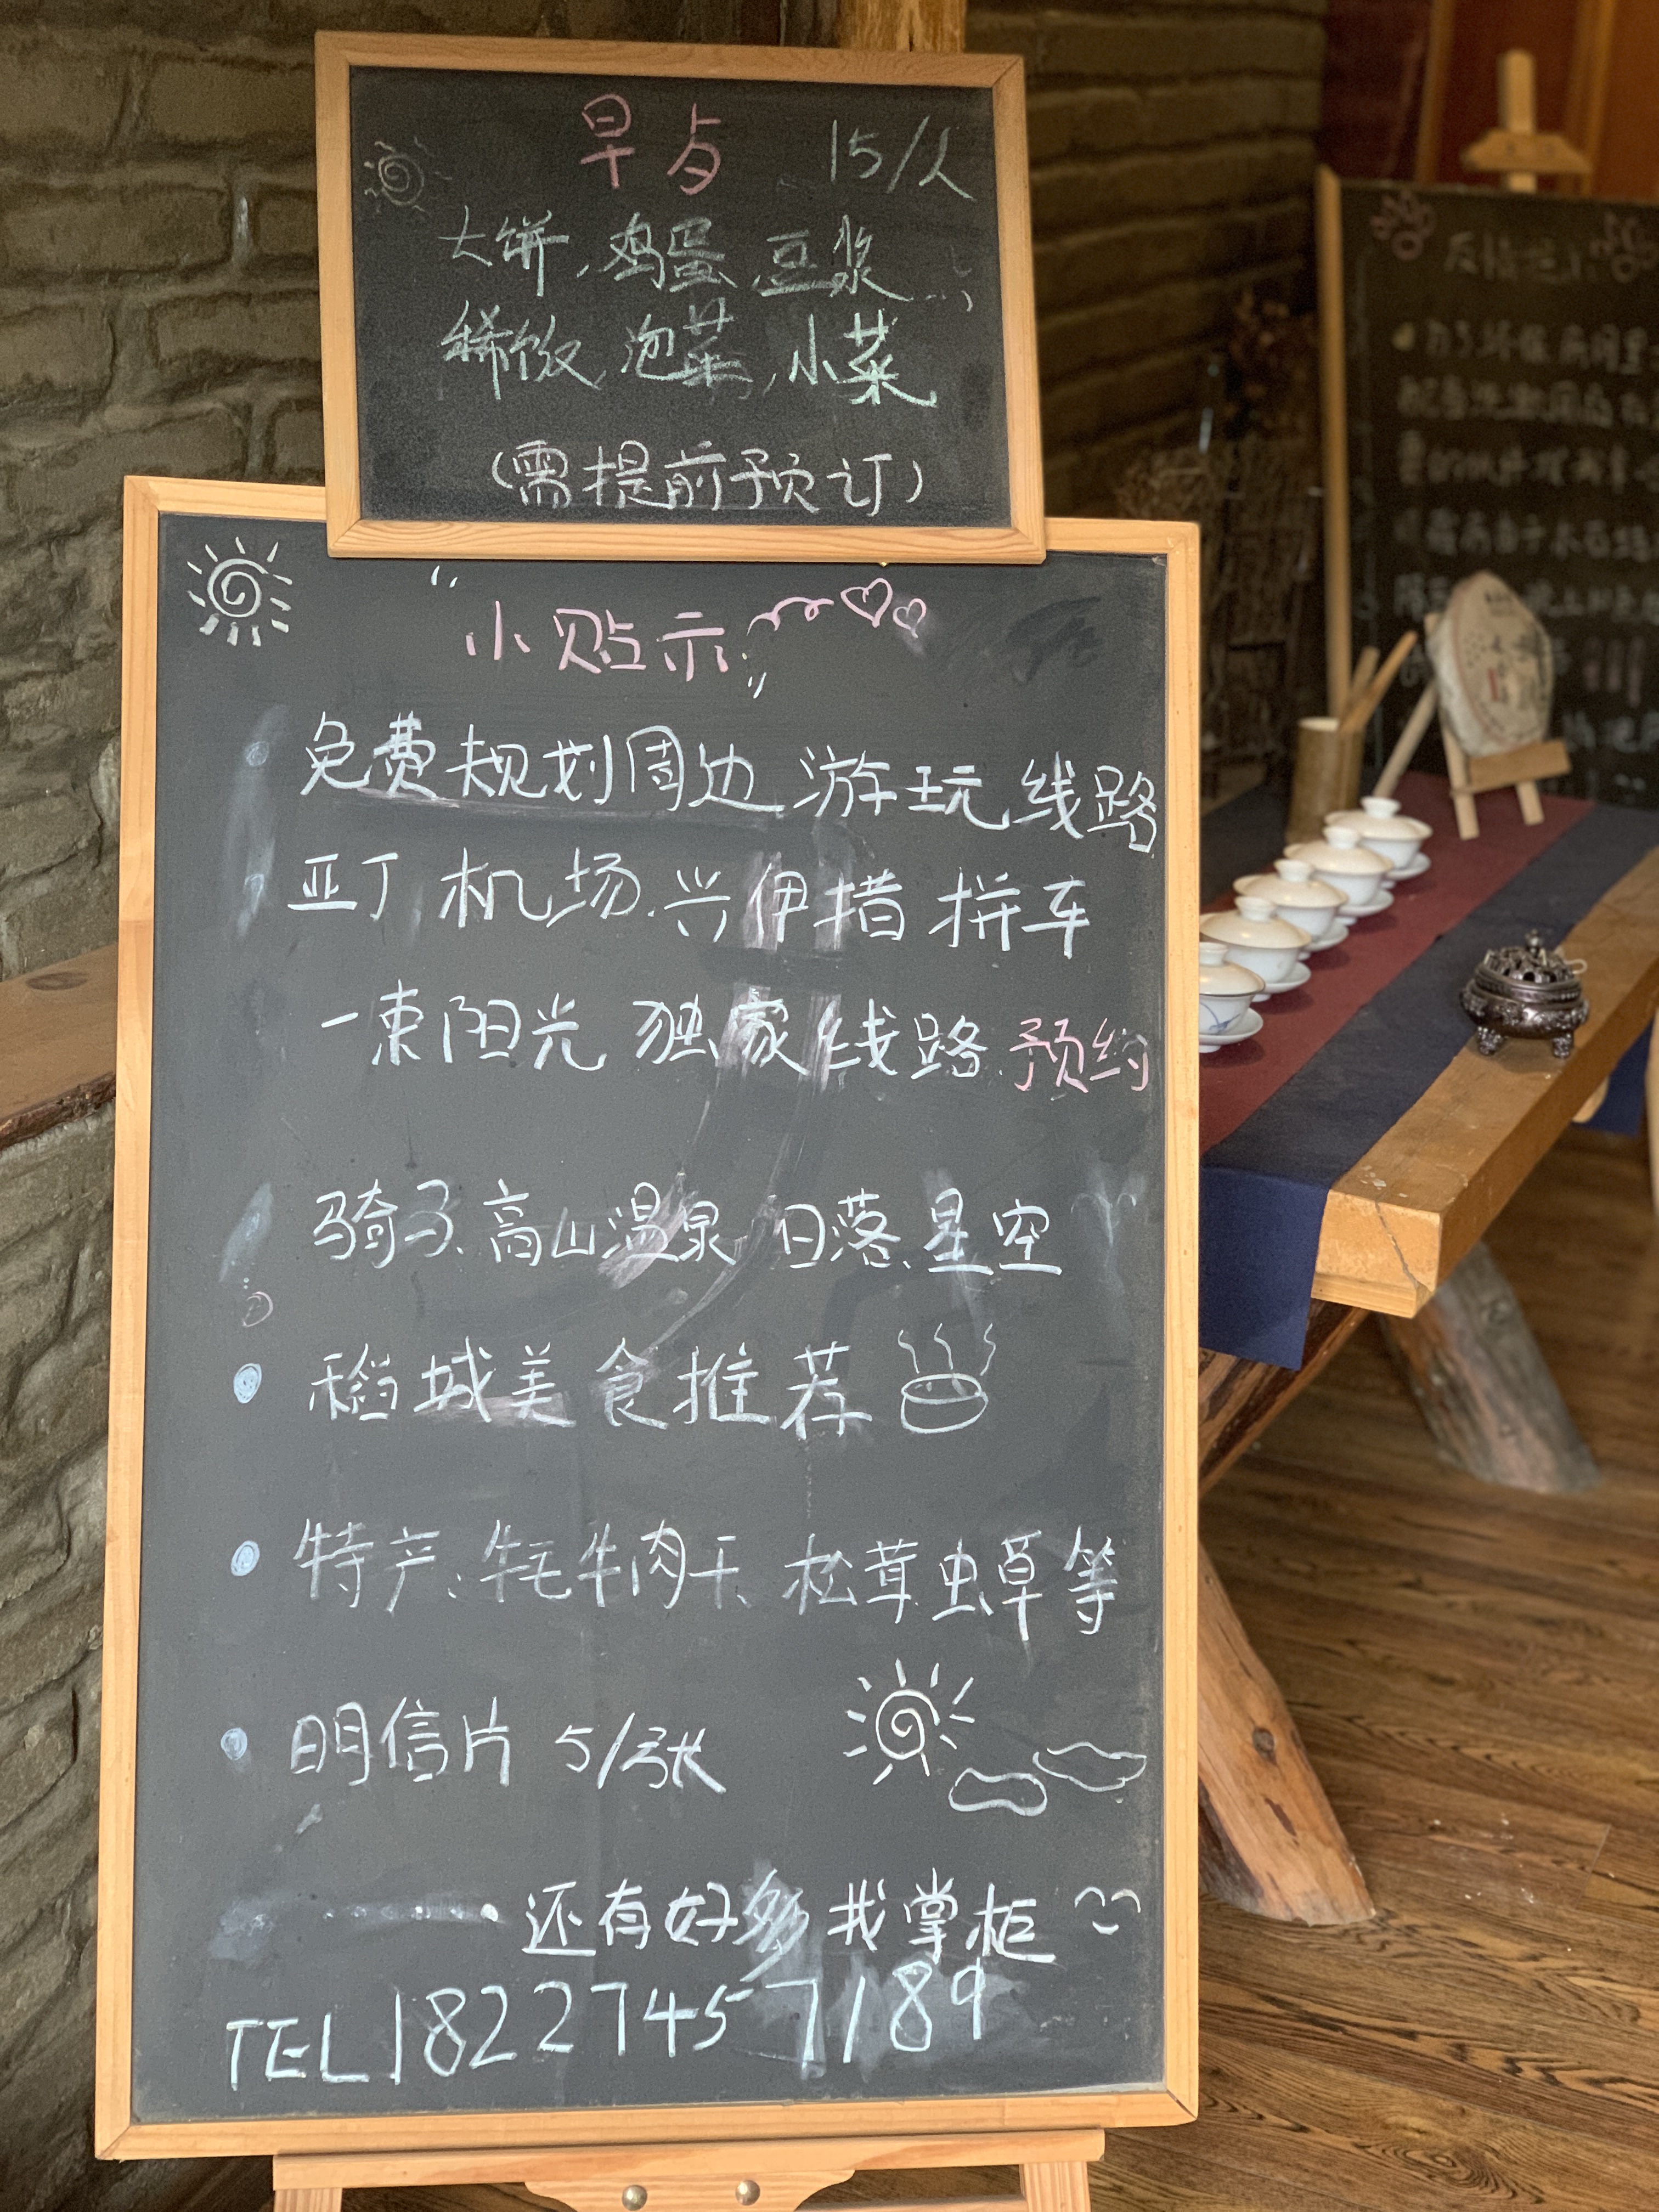 早点 15/人
大饼,鸡蛋 豆浆
稀饭,泡菜,小菜
(需提前预订)
"小贴示"
免费规划周边游玩线路
亚丁机场.兴伊措拼车
一束阳光 独家线路.预约
骑马.高山温泉 日落.星空
稻城美食推荐
特产:牦牛肉干、松茸虫草等
明信片 5/张
还有好多找掌柜
TEL18227457189